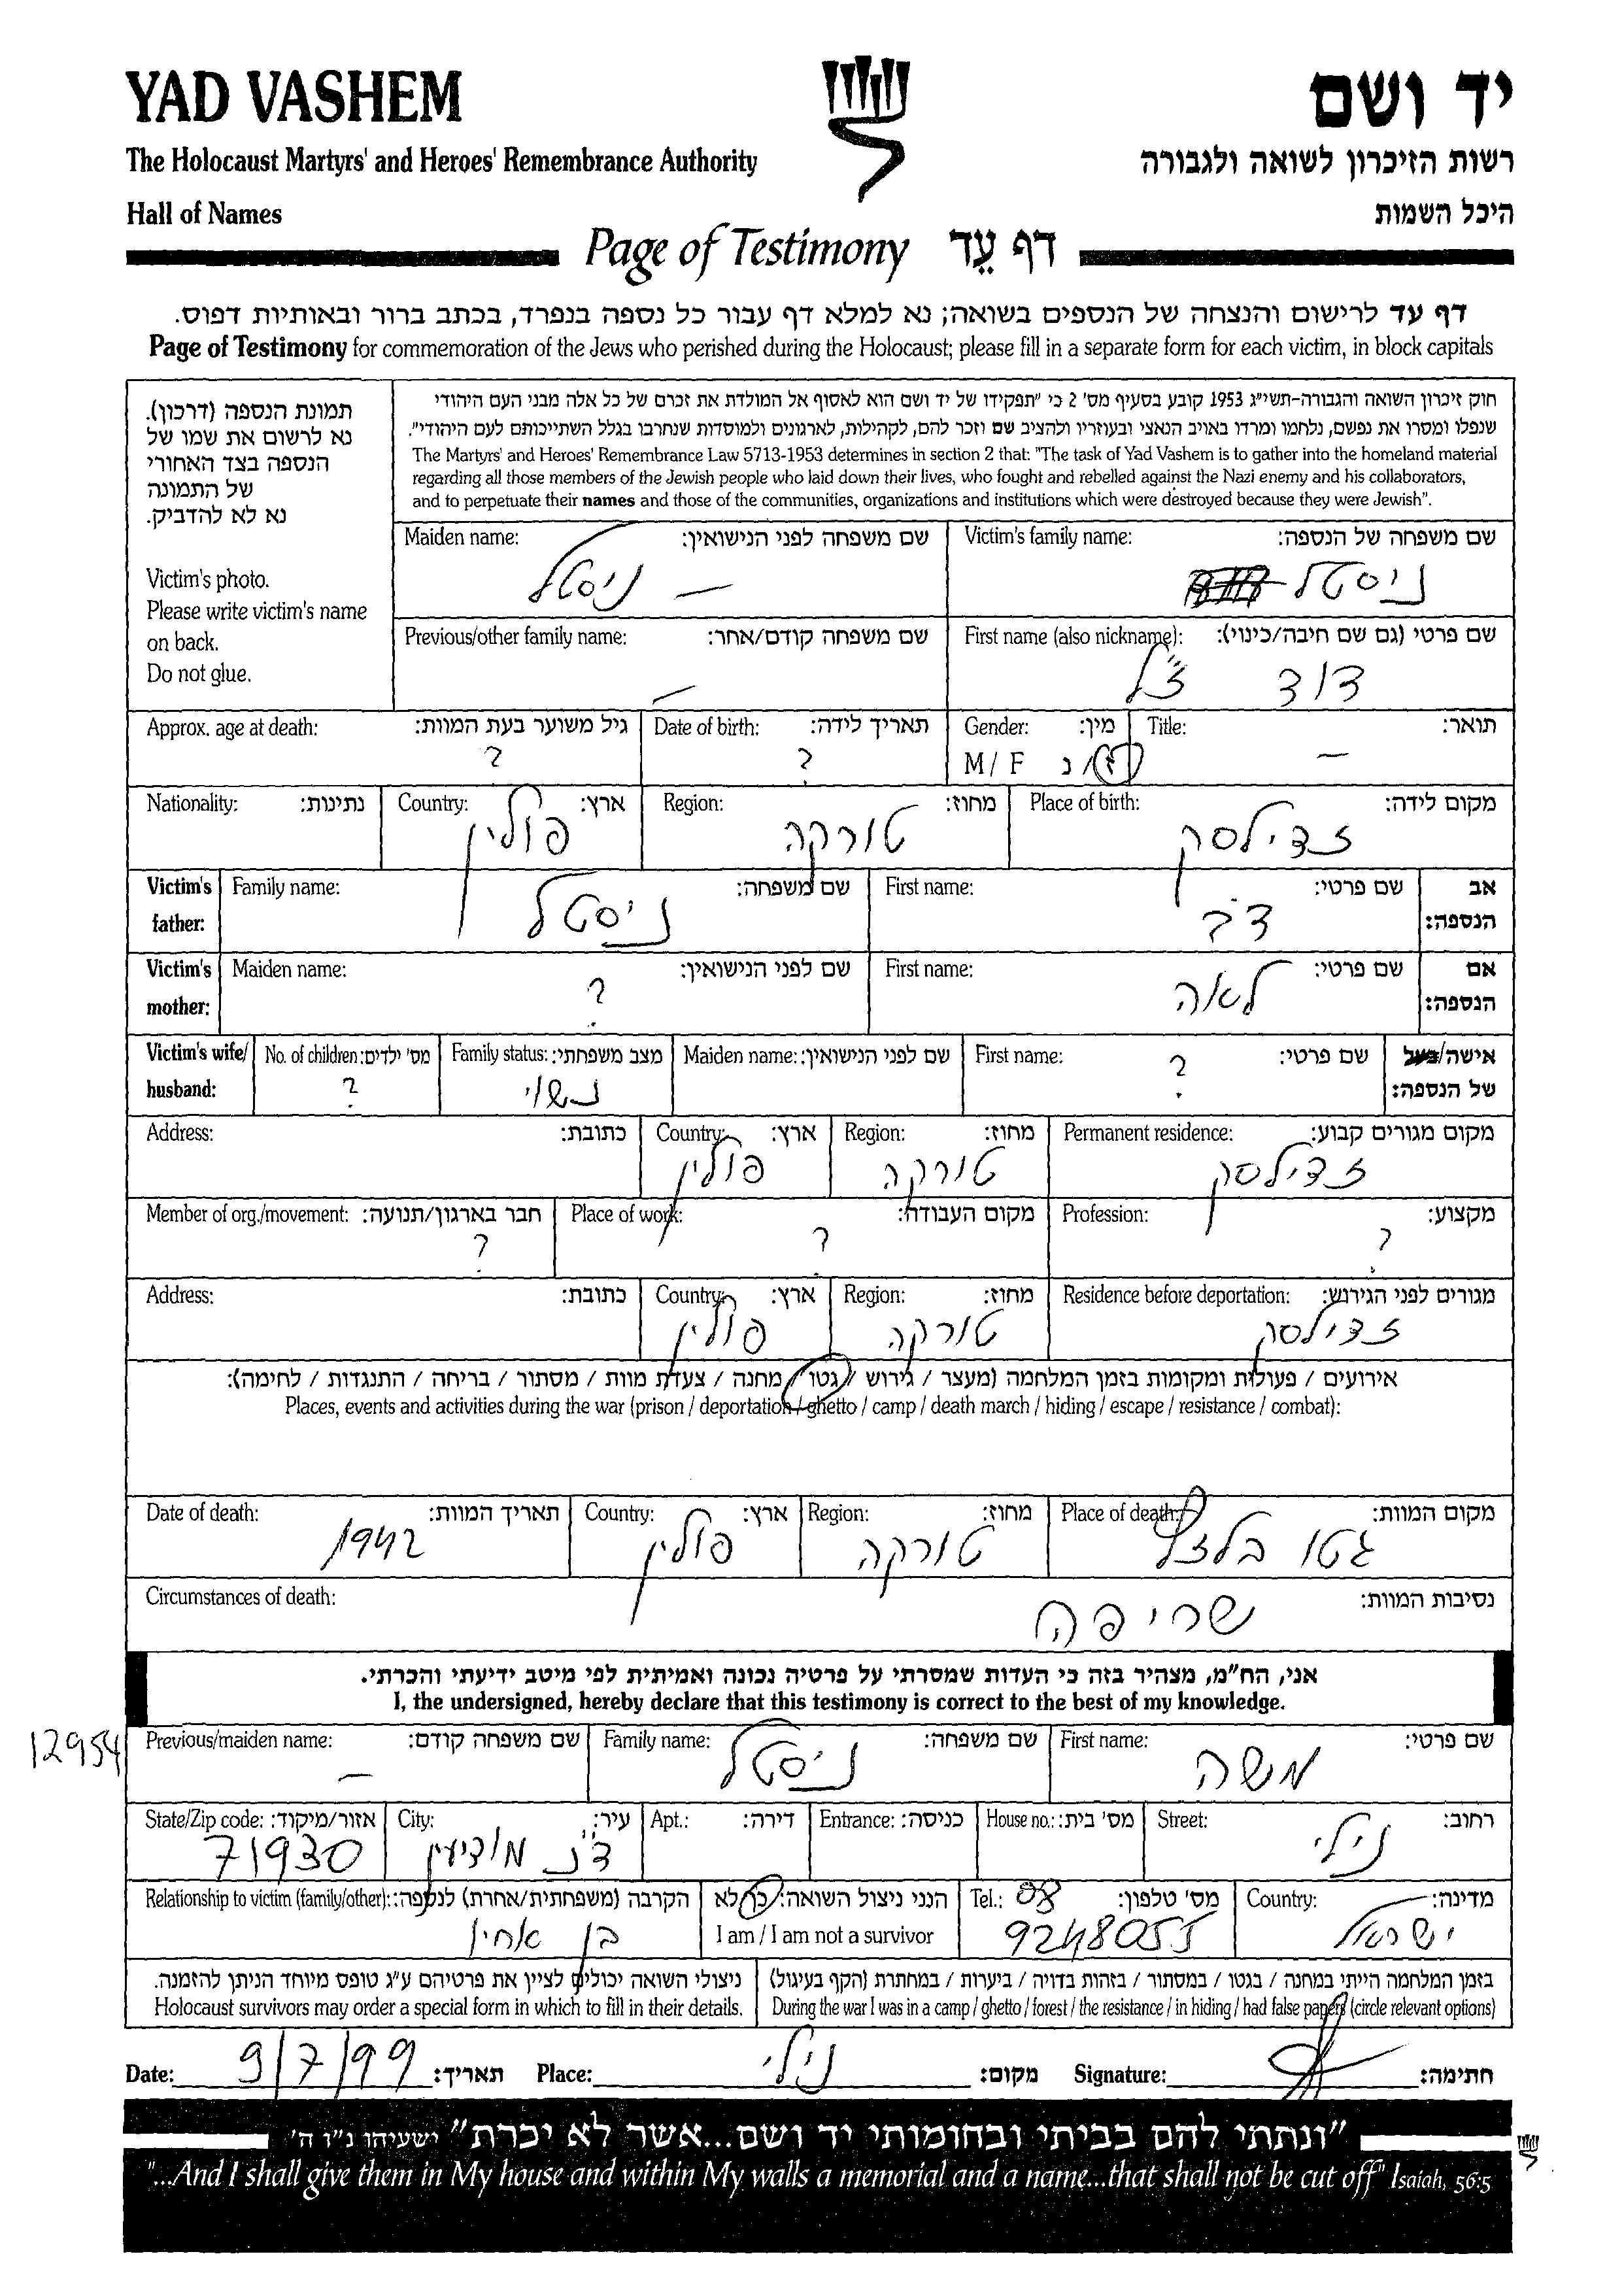 YAD VASHEM
יד ושם
The Holocaust Martyrs' and Heroes' Remembrance Authority
רשות הזיכרון לשואה ולגבורה
Hall of Names
היכל השמות
Page of Testimony דף עֵד
דף עד לרישום והנצחה של הנספים בשואה; נא למלא דף עבור כל נספה בנפרד, בכתב ברור ובאותיות דפוס.
Page of Testimony for commemoration of the Jews who perished during the Holocaust; please fill in a separate form for each victim, in block capitals
תמונת הנספה (דרכון).
נא לרשום את שמו של
הנספה בצד האחורי
של התמונה
נא לא להדביק.
Victim's photo.
Please write victim's name
on back.
Do not glue.
חוק זיכרון השואה והגבורה-תשי"ג 1953 קובע בסעיף מס' 2 כי "תפקידו של יד ושם הוא לאסוף אל המולדת את זכרם של כל אלה מבני העם היהודי
שנפלו ומסרו את נפשם, נלחמו ומרדו באויב הנאצי ובעוזריו ולהציב שם וזכר להם, לקהילות, לארגונים ולמוסדות שנחרבו בגלל השתייכותם לעם היהודי".
The Martyrs' and Heroes' Remembrance Law 5713-1953 determines in section 2 that: "The task of Yad Vashem is to gather into the homeland material
regarding all those members of the Jewish people who laid down their lives, who fought and rebelled against the Nazi enemy and his collaborators,
and to perpetuate their names and those of the communities, organizations and institutions which were destroyed because they were Jewish".
Victim's family name: שם משפחה של הנספה:
ניסטל
Maiden name: שם משפחה לפני הנישואין:
— ניסטל
First name (also nickname): שם פרטי (גם שם חיבה/כינוי):
דוד ז"ל
Previous/other family name: שם משפחה קודם/אחר:
—
Title: תואר:
—
Gender: מין:
M / F ז/נ
Date of birth: תאריך לידה:
?
Approx. age at death: גיל משוער בעת המוות:
?
Place of birth: מקום לידה:
זדילסק
Region: מחוז:
טורקה
Country: ארץ:
פולין
Nationality: נתינות:
Victim's father: אב הנספה:
First name: שם פרטי:
דב
Family name: שם משפחה:
ניסטל
Victim's mother: אם הנספה:
First name: שם פרטי:
לאה
Maiden name: שם לפני הנישואין:
?
Victim's wife/ husband: אישה/בעל של הנספה:
First name: שם פרטי:
?
Maiden name: שם לפני הנישואין:
Family status: מצב משפחתי:
נשוי
No. of children: מס' ילדים:
?
Permanent residence: מקום מגורים קבוע:
זדילסק
Region: מחוז:
טורקה
Country: ארץ:
פולין
Address: כתובת:
Profession: מקצוע:
?
Place of work: מקום העבודה:
?
Member of org./movement: חבר בארגון/תנועה:
?
Residence before deportation: מגורים לפני הגירוש:
זדילסק
Region: מחוז:
טורקה
Country: ארץ:
פולין
Address: כתובת:
אירועים / פעולות ומקומות בזמן המלחמה (מעצר / גירוש / גטו / מחנה / צעדת מוות / מסתור / בריחה / התנגדות / לחימה):
Places, events and activities during the war (prison / deportation / ghetto / camp / death march / hiding / escape / resistance / combat):
Place of death: מקום המוות:
גטו בלזץ
Region: מחוז:
טורקה
Country: ארץ:
פולין
Date of death: תאריך המוות:
1942
Circumstances of death: נסיבות המוות:
שריפה
אני, הח"מ, מצהיר בזה כי העדות שמסרתי על פרטיה נכונה ואמיתית לפי מיטב ידיעתי והכרתי.
I, the undersigned, hereby declare that this testimony is correct to the best of my knowledge.
12954
First name: שם פרטי:
משה
Family name: שם משפחה:
ניסטל
Previous/maiden name: שם משפחה קודם:
—
Street: רחוב:
נילי
House no.: מס' בית:
Entrance: כניסה:
Apt.: דירה:
City: עיר:
ד"נ מודיעין
State/Zip code: אזור/מיקוד:
71930
Country: מדינה:
ישראל
Tel.: מס' טלפון:
08
9248055
הנני ניצול השואה: כן/לא
I am / I am not a survivor
Relationship to victim (family/other): הקרבה (משפחתית/אחרת) לנספה:
בן אחיו
בזמן המלחמה הייתי במחנה / בגטו / במסתור / בזהות בדויה / ביערות / במחתרת (הקף בעיגול)
During the war I was in a camp / ghetto / forest / the resistance / in hiding / had false papers (circle relevant options)
ניצולי השואה יכולים לציין את פרטיהם ע"ג טופס מיוחד הניתן להזמנה.
Holocaust survivors may order a special form in which to fill in their details.
Date: 9/7/99 תאריך: Place: נילי מקום: Signature: חתימה:
"ונתתי להם בביתי ובחומותי יד ושם...אשר לא יכרת" ישעיהו נ"ו ה'
"...And I shall give them in My house and within My walls a memorial and a name...that shall not be cut off" Isaiah, 56:5